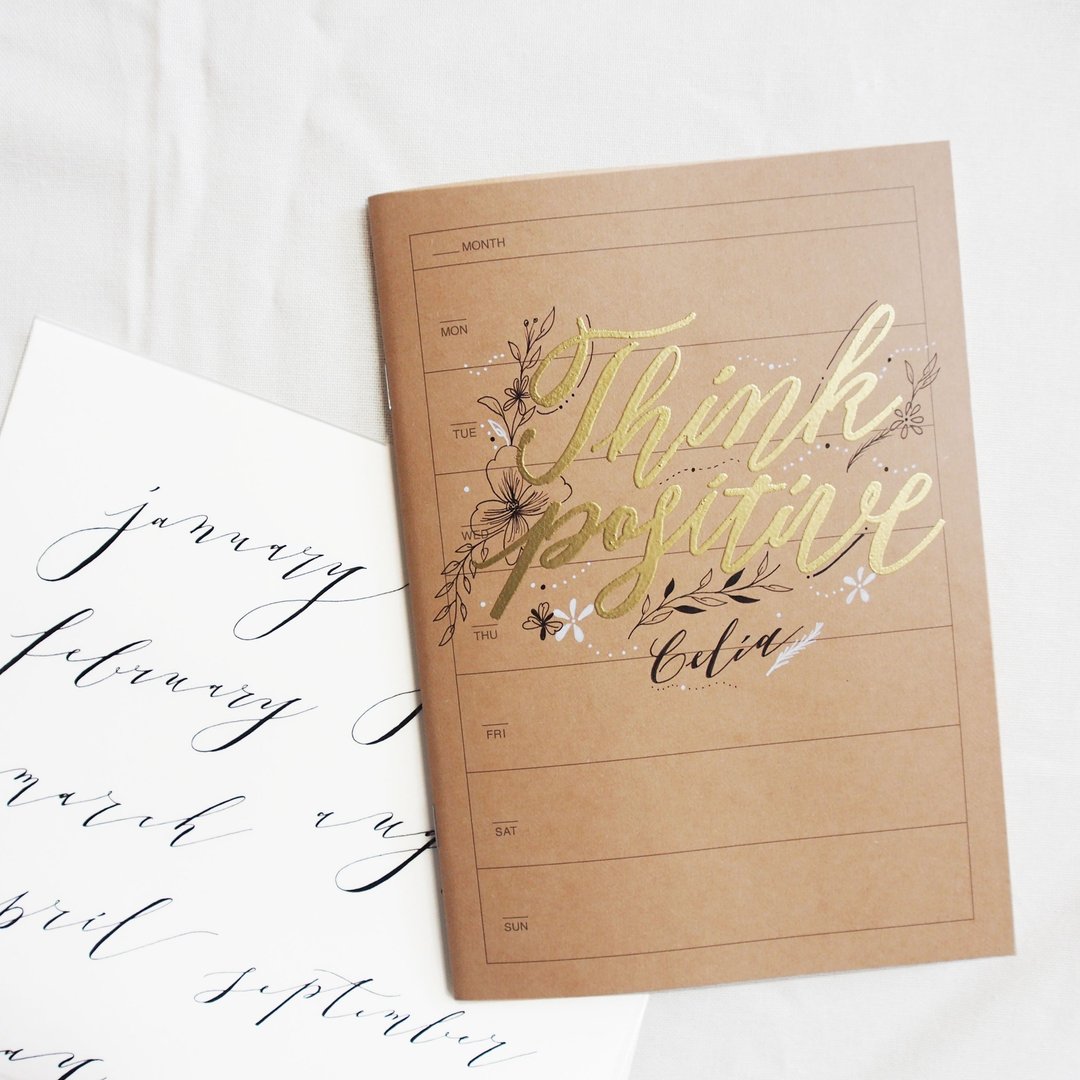 ____MONTH
MON
TUE
WED
THU
FRI
SAT
SUN
Think
positive
Celia
january
february
march
aug
pril
september